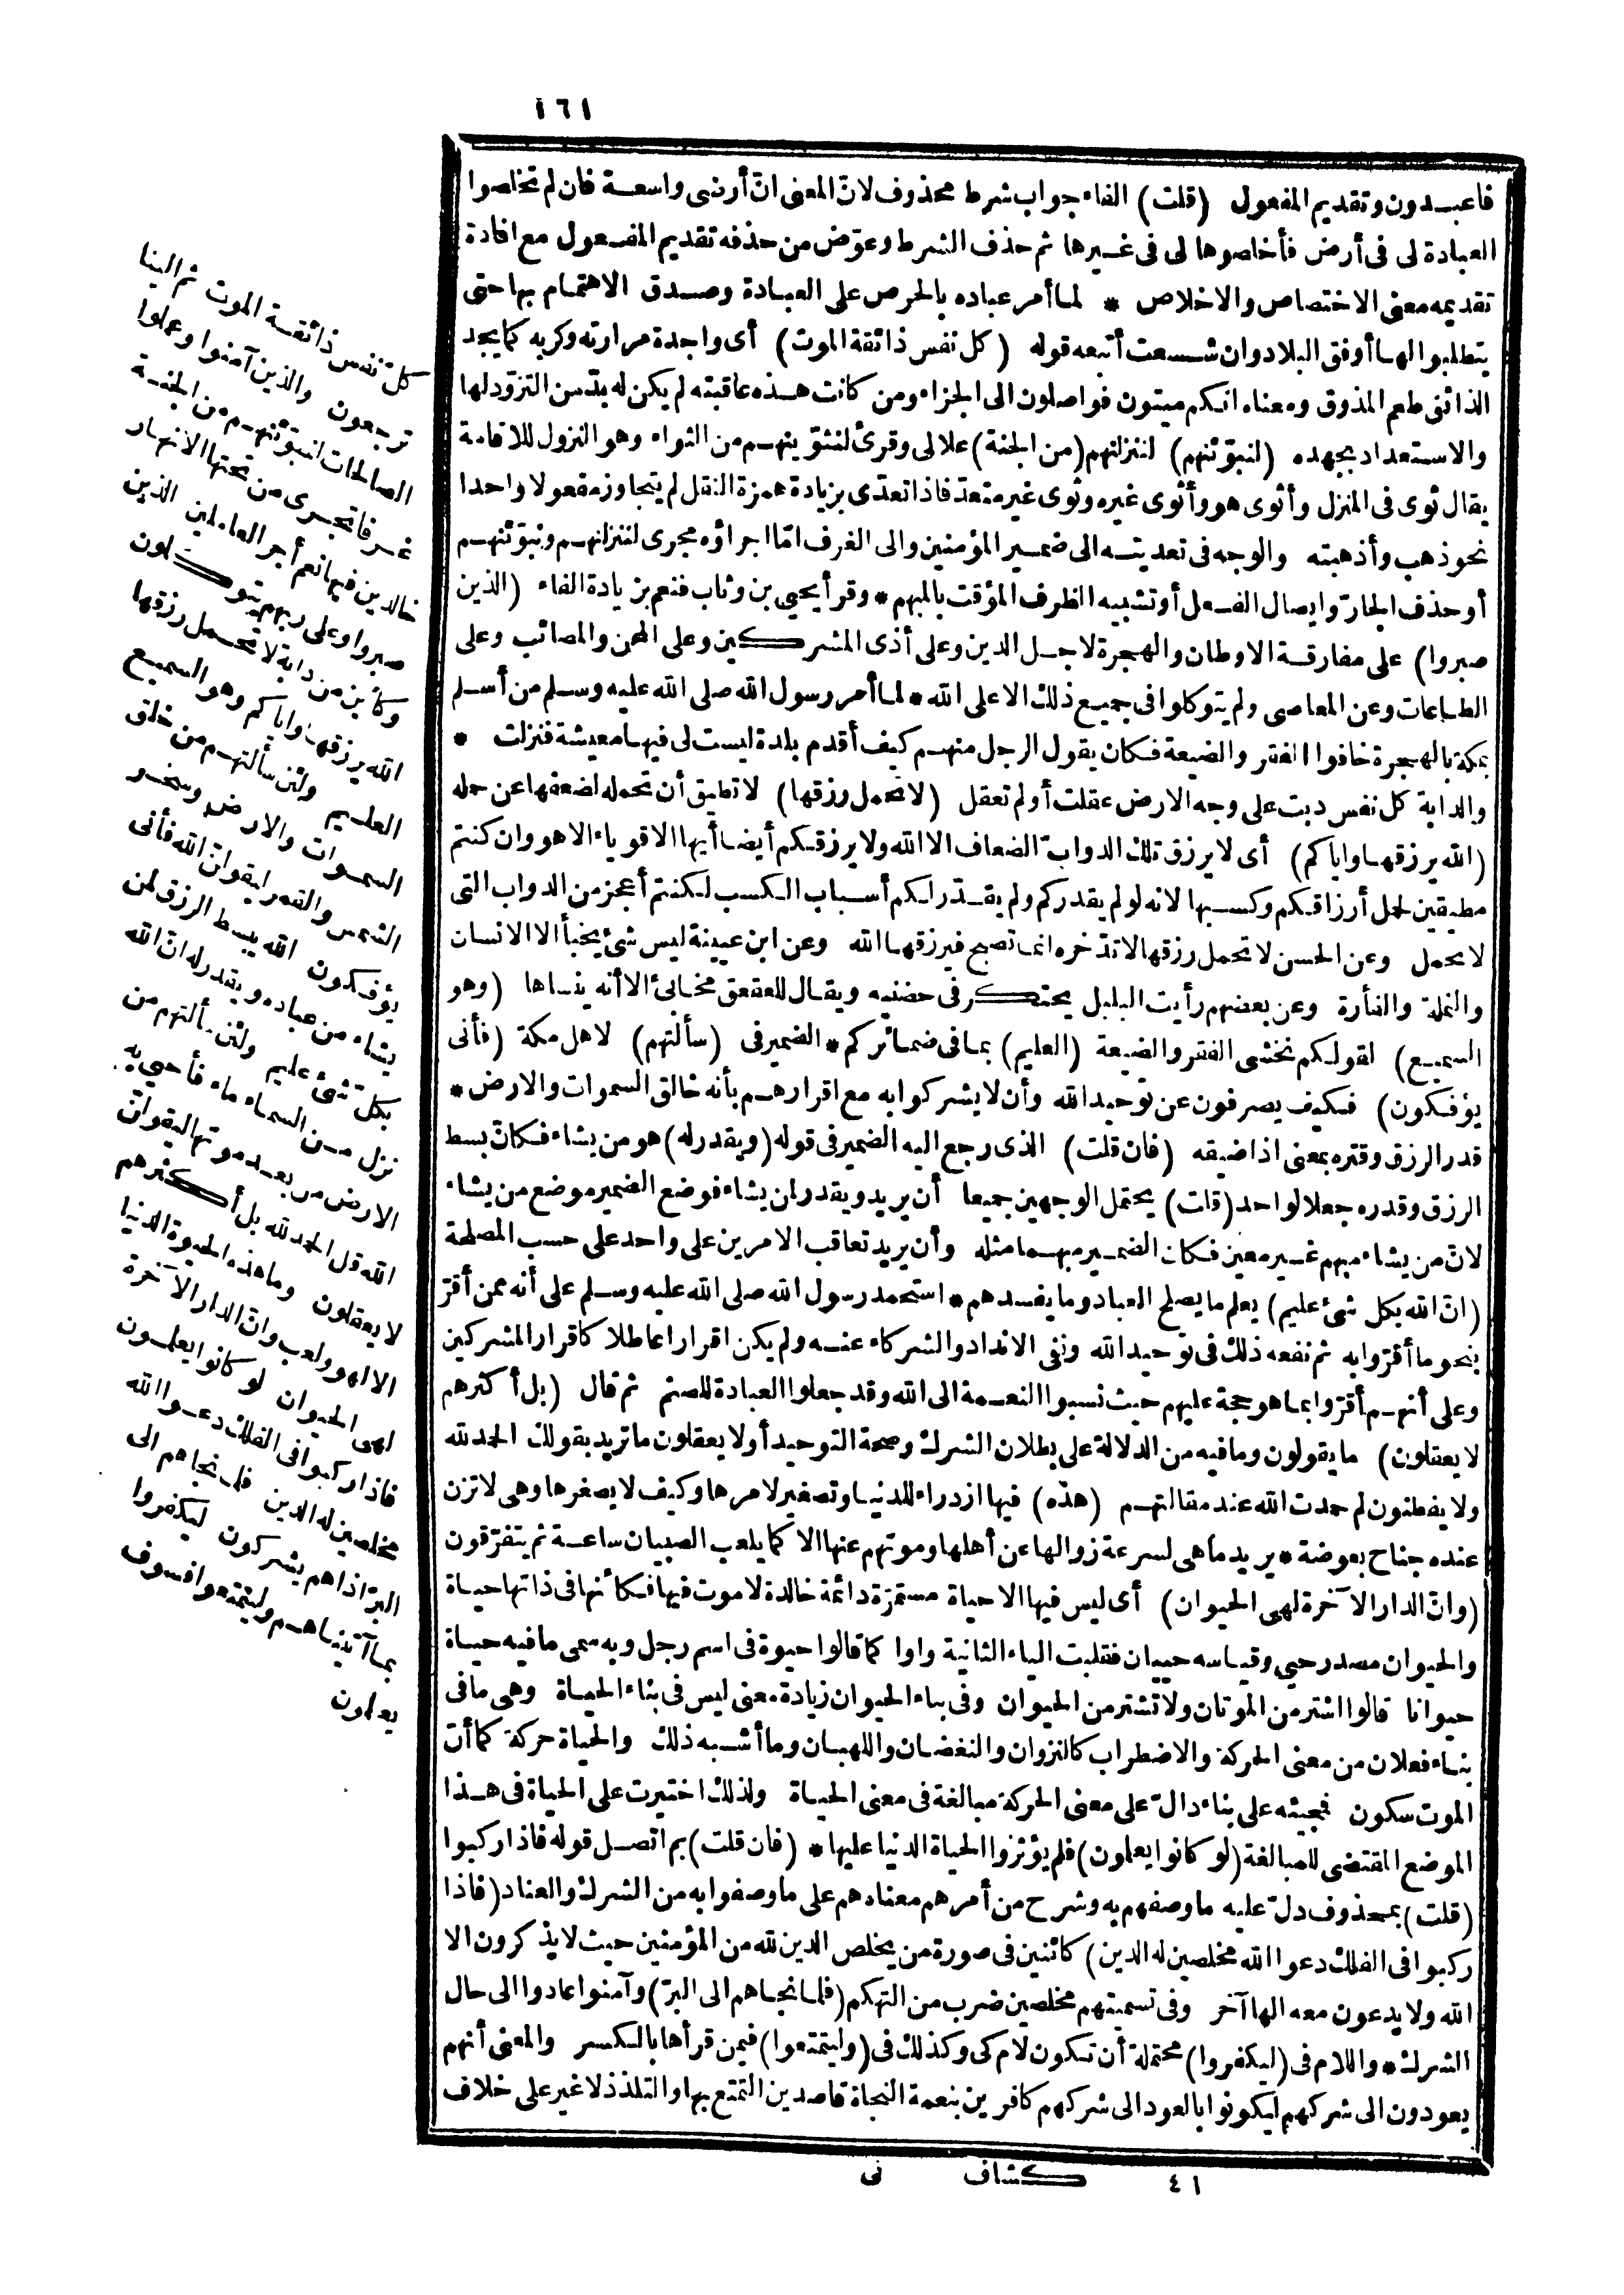 ١٦١
فاعبدون وتقديم المفعول (قلت) الفاء جواب شرط محذوف لانّ المعنى انّ أرضى واسعة فان لم تخلصوا
العبادة لى فى أرض فأخلصوها لى فى غيرها ثم حذف الشرط وعوّض من حذفه تقديم المفعول مع افادة
تقديمه معنى الاختصاص والاخلاص * لما أمر عباده بالحرص على العبادة وصدق الاهتمام بها حتى
يتطلبوا لها أوفق البلاد وان شسعت أتبعه قوله (كل نفس ذائقة الموت) أى واجدة مرارته وكربه كما يجد
الذائق طعم المذوق ومعناه انكم ميتون فواصلون الى الجزاء ومن كانت هذه عاقبته لم يكن له بدّ من التزوّد لها
والاستعداد بجهده (لنبوّئنهم) لننزلنهم (من الجنة) علالى وقرئ لنثوّينهم من الثواء وهو النزول للاقامة
يقال ثوى فى المنزل وأثوى هو وأثوى غيره وثوى غير متعدّ فاذا تعدّى بزيادة همزة النقل لم يتجاوز مفعولا واحدا
نحو ذهب وأذهبته والوجه فى تعديته الى ضمير المؤمنين والى الغرف امّا اجراؤه مجرى لننزلنهم ونبوّئنهم
أو حذف الجارّ وايصال الفعل أو تشبيه الظرف المؤقت بالمبهم * وقرأ يحيى بن وثاب فنعم بزيادة الفاء (الذين
صبروا) على مفارقة الاوطان والهجرة لاجل الدين وعلى أذى المشركين وعلى المحن والمصائب وعلى
الطاعات وعن المعاصى ولم يتوكلوا فى جميع ذلك الا على الله * لما أمر رسول الله صلى الله عليه وسلم من أسلم
بمكة بالهجرة خافوا الفقر والضيعة فكان يقول الرجل منهم كيف أقدم بلدة ليست لى فيها معيشة فنزلت *
والدابة كل نفس دبت على وجه الارض عقلت أو لم تعقل (لا تحمل رزقها) لا تطيق أن تحمله لضعفها عن حمله
(الله يرزقها واياكم) أى لا يرزق تلك الدوابّ الضعاف الا الله ولا يرزقكم أيضا أيها الاقوياء الا هو وان كنتم
مطيقين لحمل أرزاقكم وكسبها لانه لو لم يقدركم ولم يقدّر لكم أسباب الكسب لكنتم أعجز من الدواب التى
لا تحمل وعن الحسن لا تحمل رزقها لا تدّخره انما تصبح فيرزقها الله وعن ابن عيينة ليس شئ يخبأ الا الانسان
والنملة والفأرة وعن بعضهم رأيت البلبل يحتكر فى حضنيه ويقال للعقعق مخابئ الا أنه ينساها (وهو
السميع) لقولكم نخشى الفقر والضيعة (العليم) بما فى ضمائركم * الضمير فى (سألتهم) لاهل مكة (فأنى
يؤفكون) فكيف يصرفون عن توحيد الله وأن لا يشركوا به مع اقرارهم بأنه خالق السموات والارض *
قدر الرزق وقتره بمعنى اذا ضيقه (فان قلت) الذى رجع اليه الضمير فى قوله (ويقدر له) هو من يشاء فكانّ بسط
الرزق وقدره جعلا لواحد (قلت) يحتمل الوجهين جميعا أن يريد ويقدر لمن يشاء فوضع الضمير موضع من يشاء
لانّ من يشاء مبهم غير معين فكان الضمير مبهما مثله وأن يريد تعاقب الامرين على واحد على حسب المصلحة
(انّ الله بكل شئ عليم) يعلم ما يصلح العباد وما يفسدهم * استحمد رسول الله صلى الله عليه وسلم على أنه ممن أقرّ
بنحو ما أقرّوا به ثم نفعه ذلك فى توحيد الله ونفى الانداد والشركاء عنه ولم يكن اقرارا عاطلا كاقرار المشركين
وعلى أنهم أقرّوا بما هو حجة عليهم حيث نسبوا النعمة الى الله وقد جعلوا العبادة للصنم ثم قال (بل أكثرهم
لا يعقلون) ما يقولون وما فيه من الدلالة على بطلان الشرك وصحة التوحيد أو لا يعقلون ما تريد بقولك الحمد لله
ولا يفطنون لم حمدت الله عند مقالتهم (هذه) فيها ازدراء للدنيا وتصغير لامرها وكيف لا يصغرها وهى لا تزن
عنده جناح بعوضة * يريد ما هى لسرعة زوالها عن أهلها وموتهم عنها الا كما يلعب الصبيان ساعة ثم يتفرّقون
(وانّ الدار الآخرة لهى الحيوان) أى ليس فيها الا حياة مستمرّة دائمة خالدة لا موت فيها فكأنها فى ذاتها حياة
والحيوان مصدر حيي وقياسه حييان فقلبت الياء الثانية واوا كما قالوا حيوة فى اسم رجل وبه سمى ما فيه حياة
حيوانا قالوا اشتر من الموتان ولا تشتر من الحيوان وفى بناء الحيوان زيادة معنى ليس فى بناء الحياة وهى ما فى
بناء فعلان من معنى الحركة والاضطراب كالنزوان والنغضان واللهبان وما أشبه ذلك والحياة حركة كما أنّ
الموت سكون فمجيئه على بناء دالّ على معنى الحركة مبالغة فى معنى الحياة ولذلك اختيرت على الحياة فى هذا
الموضع المقتضى للمبالغة (لو كانوا يعلمون) فلم يؤثروا الحياة الدنيا عليها * (فان قلت) بم اتصل قوله فاذا ركبوا
(قلت) بمحذوف دلّ عليه ما وصفهم به وشرح من أمرهم معناه هم على ما وصفوا به من الشرك والعناد (فاذا
ركبوا فى الفلك دعوا الله مخلصين له الدين) كائنين فى صورة من يخلص الدين لله من المؤمنين حيث لا يذكرون الا
الله ولا يدعون معه الها آخر وفى تسميتهم مخلصين ضرب من التهكم (فلما نجاهم الى البرّ) وآمنوا عادوا الى حال
الشرك * واللام فى (ليكفروا) محتملة أن تكون لام كى وكذلك فى (وليتمتعوا) فيمن قرأها بالكسر والمعنى أنهم
يعودون الى شركهم ليكونوا بالعود الى شركهم كافرين بنعمة النجاة قاصدين التمتع بها والتلذذ لا غير على خلاف
كلّ نفس ذائقة الموت ثم الينا
ترجعون والذين آمنوا وعملوا
الصالحات لنبوّئنهم من الجنة
غرفا تجرى من تحتها الانهار
خالدين فيها نعم أجر العاملين الذين
صبروا وعلى ربهم يتوكلون
وكأين من دابة لا تحمل رزقها
الله يرزقها واياكم وهو السميع
العليم ولئن سألتهم من خلق
السموات والارض وسخر
الشمس والقمر ليقولنّ الله فأنى
يؤفكون الله يبسط الرزق لمن
يشاء من عباده ويقدر له انّ الله
بكل شئ عليم ولئن سألتهم من
نزل من السماء ماء فأحيى به
الارض من بعد موتها ليقولنّ
الله قل الحمد لله بل أكثرهم
لا يعقلون وما هذه الحيوة الدنيا
الا لهو ولعب وانّ الدار الآخرة
لهى الحيوان لو كانوا يعلمون
فاذا ركبوا فى الفلك دعوا الله
مخلصين له الدين فلما نجاهم الى
البرّ اذا هم يشركون ليكفروا
بما آتيناهم وليتمتعوا فسوف
يعلمون
٤١ كشاف نى